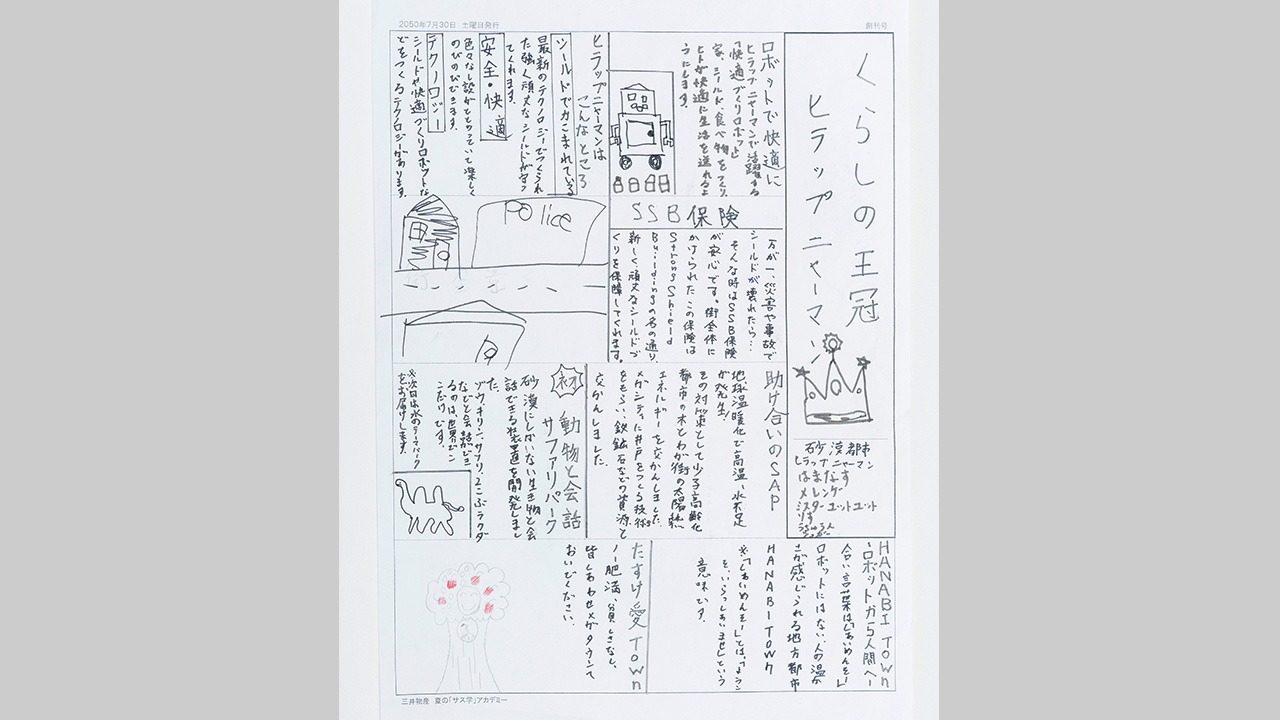 2050年7月30日 土曜日発行
創刊号
くらしの王冠
ヒラップニャーマン
砂漠都市
ヒラップニャーマン
はまなす
メレンゲ
ミスターユットユット
りす
ロボットで快適に
ヒラップニャーマンで活躍する
「快適づくりロボット」
家、シールド、食べ物をつくり、
ヒトが快適に生活を送れるよ
うにします。
ヒラップニャーマンは
こんなところ
シールドでかこまれている
最新のテクノロジーでつくられ
た強く頑丈なシールドが守っ
てくれます。
安全・快適
色々なし設がととのっていて楽しく
のびのびできます。
テクノロジー
シールドや快適づくりロボットな
どをつくるテクノロジーがあります。
Police
SSB保険
万が一、災害や事故で
シールドが壊れたら…
そんな時はSSB保険
が安心です。街全体に
かけられたこの保険は
Strong Shield
Buildingの名の通り、
新しく頑丈なシールドづ
くりを保障してくれます。
助け合いのSAP
地球温暖化で高温、水不足
が発生!
その対策として少子高齢化
都市の木とわが街の太陽熱
エネルギーを交かんしました。
メガシティに井戸をつくる技術
をもらい、鉄鉱石などの資源と
交かんしました。
初
動物と会話
サファリパーク
砂漠にしかいない生き物と会
話できる装置を開発しまし
た。
ゾウ、キリン、サソリ、ふたこぶラクダ
などと会話ができ
るのは、世界でこ
こだけです。
※次回は水のテーマパーク
をお届けします。
HANABI TOWN
〜ロボットから人間へ〜
合い言葉は「しあいめんそ〜」
ロボットにはない、人の温か
さが感じられる地方都市
HANABI TOWN
意味です。
たすけ愛TOWN
ノー肥満、貧しさなし、
皆しあわせメガタウンで
おいでください。
三井物産 夏の「サス学」アカデミー